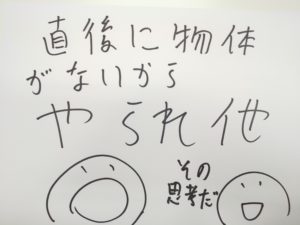 直後に物体
がないから
やられ他
その
思考だ